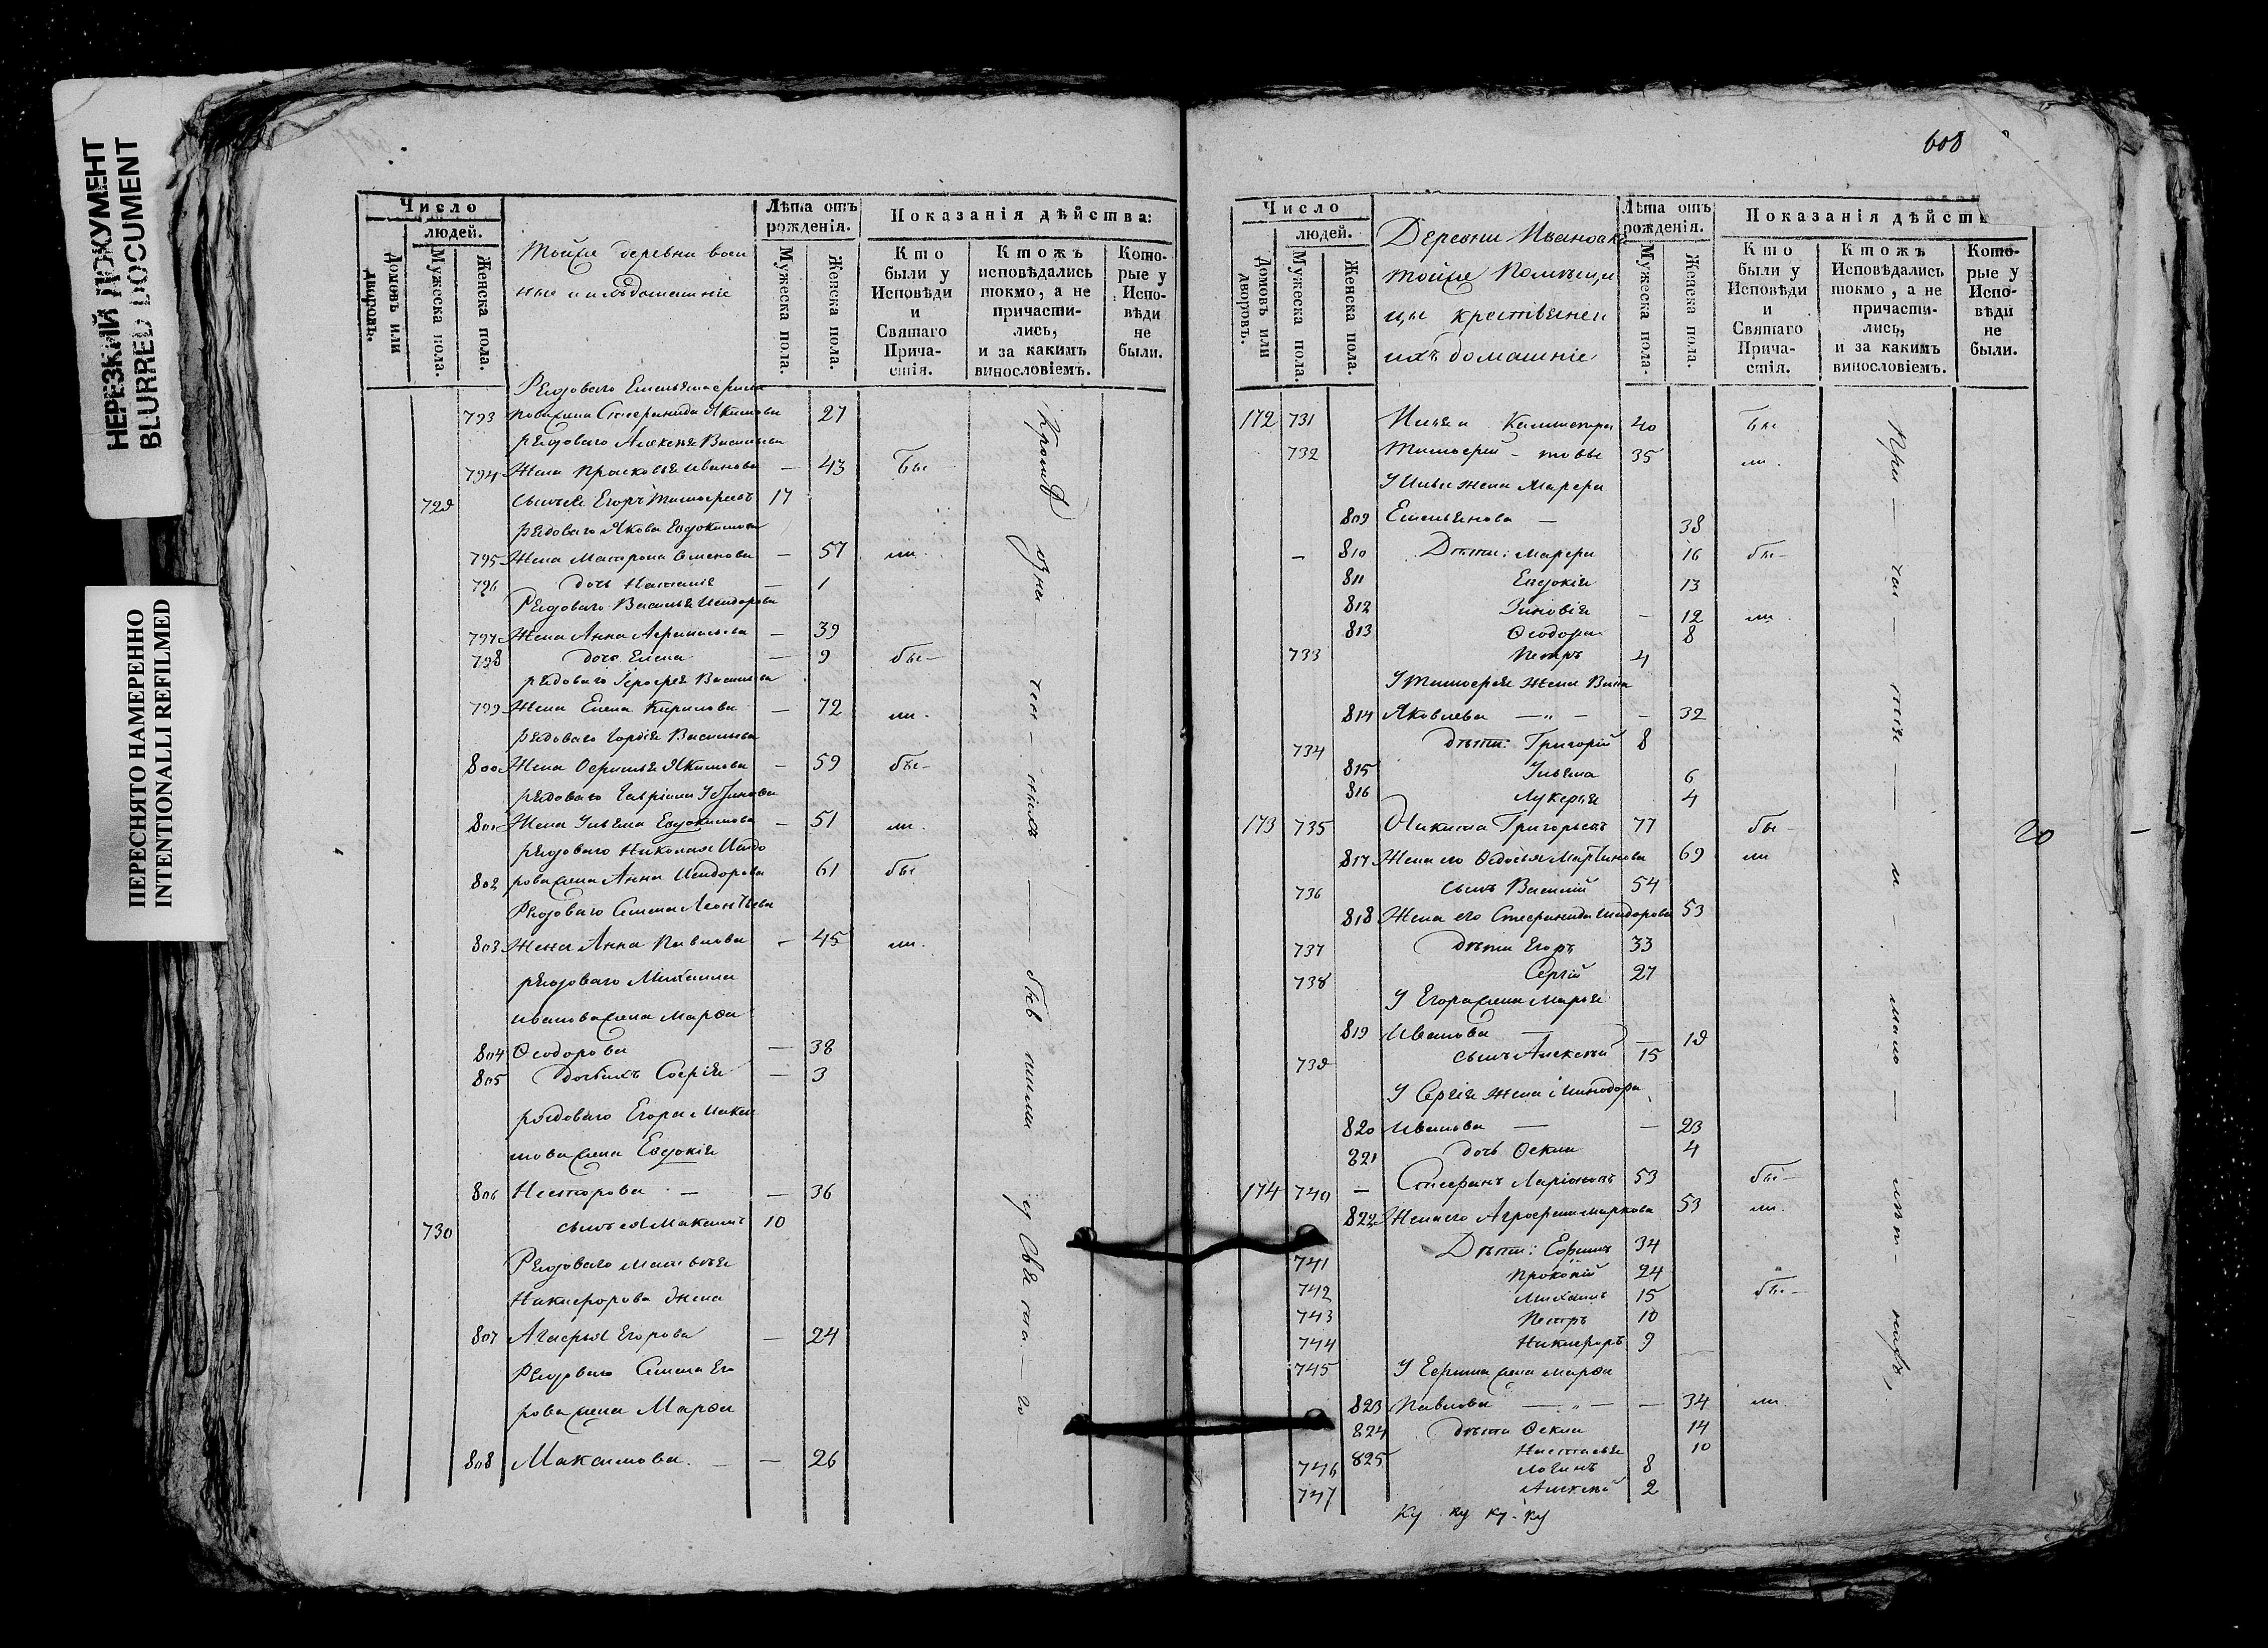 НЕРЕЗКИЙ ДОКУМЕНТ
BLURRED DOCUMENT
ПЕРЕСНЯТО НАМЕРЕННО
INTENTIONALLI REFILMED
Число
людей.
Домовъ или дворовъ.
Мужеска пола.
Женска пола.
Тойже деревни воен
ные и ихъ домашніе
Лѣта отъ рожденія.
Мужеска пола.
Женска пола.
Показанія дѣйства:
Кто были у Исповѣди и Святаго Причастія.
Ктожъ исповѣдались токмо, а не причастились, и за какимъ винословіемъ.
Которые у Исповѣди не были.
Рядоваго Емельяна
793 Стефанида Якимова 27
рядоваго Алексѣя Васильева
794 Жена Прасковья Иванова — 43 бы
729 сынъ ея Егоръ Тимофеевъ 17
рядоваго Якова Евдокимова
795 Жена Матрона Семенова — 57 ли.
796 дочь Наталія — 1
Рядоваго Василья Исидорова
797 Жена Анна — 39
798 дочь Елена — 9 бы—
рядоваго Васильева
799 Жена Елена Кирилова — 72 ли.
рядоваго Гордѣя Васильева
800 Жена Офимья Якимова — 59 бы—
рядоваго Гавріила
801 Жена Ульяна Евдокимова — 51 ли.
рядоваго Николая Исидо
802 рова жена Анна Исидорова 61 бы
Рядоваго Семена Леонтьева
803 Жена Анна Павлова — 45 ли.
рядоваго Михаила
Иванова жена Марѳа
804 Ѳеодорова — 38
805 дочь ихъ Софія — 3
рядоваго Егора Макси
мова жена Евдокія
806 Несторова — — 36
730 сынъ ея Максимъ 10
Рядоваго Матвѣя
Никифорова жена
807 Агафья Егорова — 24
Рядоваго Семена Его
рова жена Марѳа
808 Максимова. — — 26
608
Число
людей.
Домовъ или дворовъ.
Мужеска пола.
Женска пола.
Деревни Ивановки
тойже Помѣщи
цы крестьяне и
ихъ домашніе
Лѣта отъ рожденія.
Мужеска пола.
Женска пола.
Показанія дѣйств
Кто были у Исповѣди и Святаго Причастія.
Ктожъ Исповѣдались токмо, а не причастились, и за какимъ винословіемъ.
Которые у Исповѣди не были.
172 731 Илья и 40 бы
732 Тимофей 35 ли.
У Ильи жена Марфа
809 Емельянова — 38
810 Дѣти: Марфа 16 бы—
811 Евдокія 13
812 Зиновія — 12 ли
813 Ѳеодора 8
733 Петръ 4
У Тимофея жена
814 Яковлева — „ — — 32
734 дѣти: Григорій 8
815 Ульяна 6
816 Лукерья 4
173 735 Никита Григорьевъ 77 бы— 20
817 Жена его Ѳедосья Мартинова 69 ли
736 сынъ Василій 54
818 Жена его Стефанида Исидорова 53
737 дѣти Егоръ 33
738 Сергій 27
У Егора жена Марья
819 Иванова — — 19
739 сынъ Алексѣй 15
У Сергія жена Минодора
820 Иванова — — 23
821 дочь Ѳекла 4
174 740 — Стефанъ Ларіоновъ 53 бы—
822 Жена его Агрофена Маркова 53 ли.
741 Дѣти: Ефимъ 34
742 Прокопій 24
743 Михаилъ 15 бы—
744 Петръ 10
745 Никифоръ 9
У Ефима жена Марѳа
823 Павлова — „ — — 34 ли.
824 дѣти Ѳекла 14
825 Настасья 10
746 Логинъ 8
747 Алексѣй 2
ку ку ку. ку